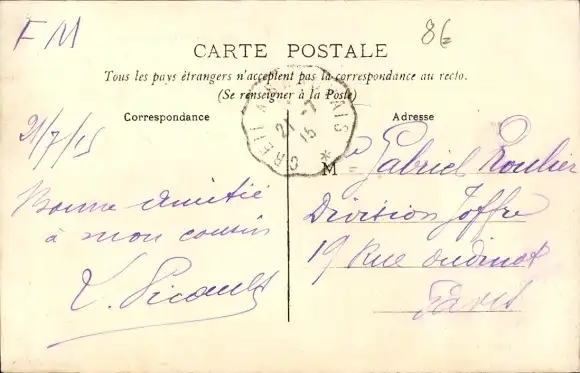 FM
86
CARTE POSTALE
Tous les pays étrangers n'acceptent pas la correspondance au recto.
(Se renseigner à la Poste)
Correspondance
21/7/15
Bonne amitié
à mon cousin
V. Picault
CREIL A BEAUVAIS
21-7
15
Adresse
M Gabriel Roulier
Division Joffre
19 Rue oudinot
Paris